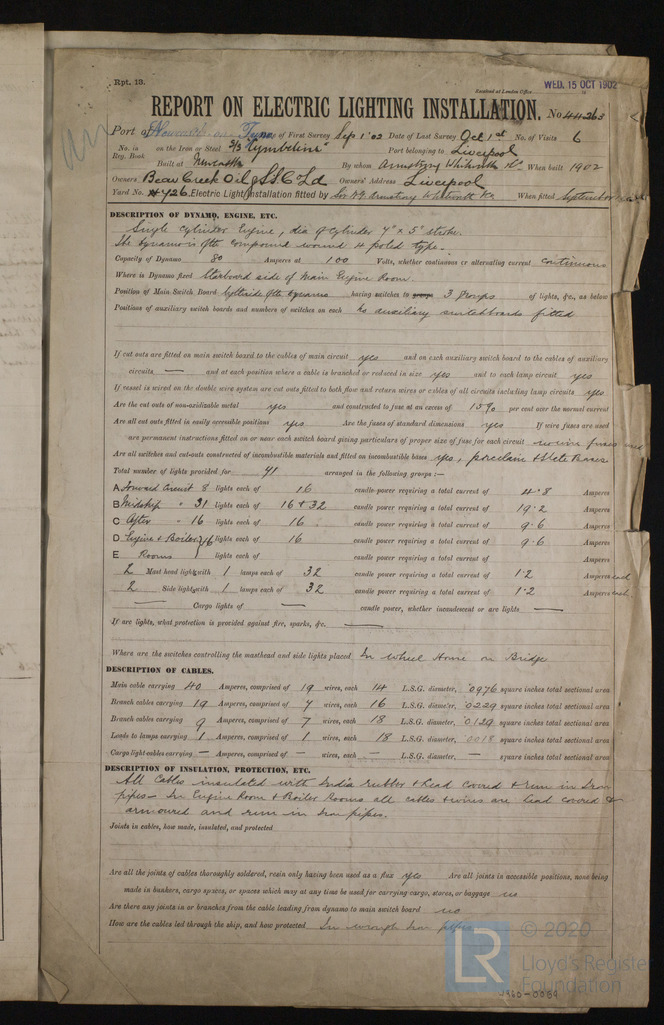 Rpt. 13.
Received at London Office
WED. 15 OCT 1902
REPORT ON ELECTRIC LIGHTING INSTALLATION. No 44263
Port of Newcastle on Tyne Date of First Survey Sep 1 '02 Date of Last Survey Oct 1st No. of Visits 6
No. in Reg. Book on the Iron or Steel S/S "Cymbeline" Port belonging to Liverpool
Built at Newcastle By whom Armstrong Whitworth & Co When built 1902
Owners Bear Creek Oil & S.S. Co Ld Owners' Address Liverpool
Yard No. 726 Electric Light Installation fitted by Sir W.G. Armstrong Whitworth & Co When fitted September
DESCRIPTION OF DYNAMO, ENGINE, ETC.
Single Cylinder Engine, dia of Cylinder 7" x 5" stroke.
The dynamo is of the compound wound 4 poled type.
Capacity of Dynamo 80 Amperes at 100 Volts, whether continuous or alternating current continuous
Where is Dynamo fixed Starboard side of Main Engine Room.
Position of Main Switch Board having switches to groups 3 groups of lights, &c., as below
Positions of auxiliary switch boards and numbers of switches on each No auxiliary switchboards fitted
If cut outs are fitted on main switch board to the cables of main circuit yes and on each auxiliary switch board to the cables of auxiliary
circuits — and at each position where a cable is branched or reduced in size yes and to each lamp circuit yes
If vessel is wired on the double wire system are cut outs fitted to both flow and return wires or cables of all circuits including lamp circuits yes
Are the cut outs of non-oxidizable metal yes and constructed to fuse at an excess of 15% per cent over the normal current
Are all cut outs fitted in easily accessible positions yes Are the fuses of standard dimensions yes If wire fuses are used
are permanent instructions fitted on or near each switch board giving particulars of proper size of fuse for each circuit no wire fuses used
Are all switches and cut-outs constructed of incombustible materials and fitted on incombustible bases yes, porcelain & slate Bases
Total number of lights provided for 71 arranged in the following groups :—
A Forward Circuit 8 lights each of 16 candle-power requiring a total current of 4.8 Amperes
B Midship " 31 lights each of 16 + 32 candle-power requiring a total current of 19.2 Amperes
C After " 16 lights each of 16 candle-power requiring a total current of 9.6 Amperes
D Engine & Boiler 16 lights each of 16 candle-power requiring a total current of 9.6 Amperes
E Rooms lights each of candle-power requiring a total current of Amperes
2 Mast head light with 1 lamps each of 32 candle power requiring a total current of 1.2 Amperes each
2 Side light with 1 lamps each of 32 candle power requiring a total current of 1.2 Amperes each
— Cargo lights of — candle power, whether incandescent or arc lights —
If arc lights, what protection is provided against fire, sparks, &c. —
Where are the switches controlling the masthead and side lights placed In Wheel House on Bridge
DESCRIPTION OF CABLES.
Main cable carrying 40 Amperes, comprised of 19 wires, each 14 L.S.G. diameter, .0976 square inches total sectional area
Branch cables carrying 19 Amperes, comprised of 7 wires, each 16 L.S.G. diameter, .0229 square inches total sectional area
Branch cables carrying 9 Amperes, comprised of 7 wires, each 18 L.S.G. diameter, .0129 square inches total sectional area
Leads to lamps carrying 1 Amperes, comprised of 1 wires, each 18 L.S.G. diameter, .0018 square inches total sectional area
Cargo light cables carrying — Amperes, comprised of — wires, each — L.S.G. diameter, — square inches total sectional area
DESCRIPTION OF INSULATION, PROTECTION, ETC.
All Cables insulated with India rubber & lead covered & run in Iron
pipes — In Engine Room & Boiler Rooms all cables & wires are lead covered &
armoured and run in Iron pipes.
Joints in cables, how made, insulated, and protected
Are all the joints of cables thoroughly soldered, resin only having been used as a flux yes Are all joints in accessible positions, none being
made in bunkers, cargo spaces, or spaces which may at any time be used for carrying cargo, stores, or baggage no
Are there any joints in or branches from the cable leading from dynamo to main switch board no
How are the cables led through the ship, and how protected In wrought Iron pipes.
LR
© 2020
Lloyd's Register
Foundation